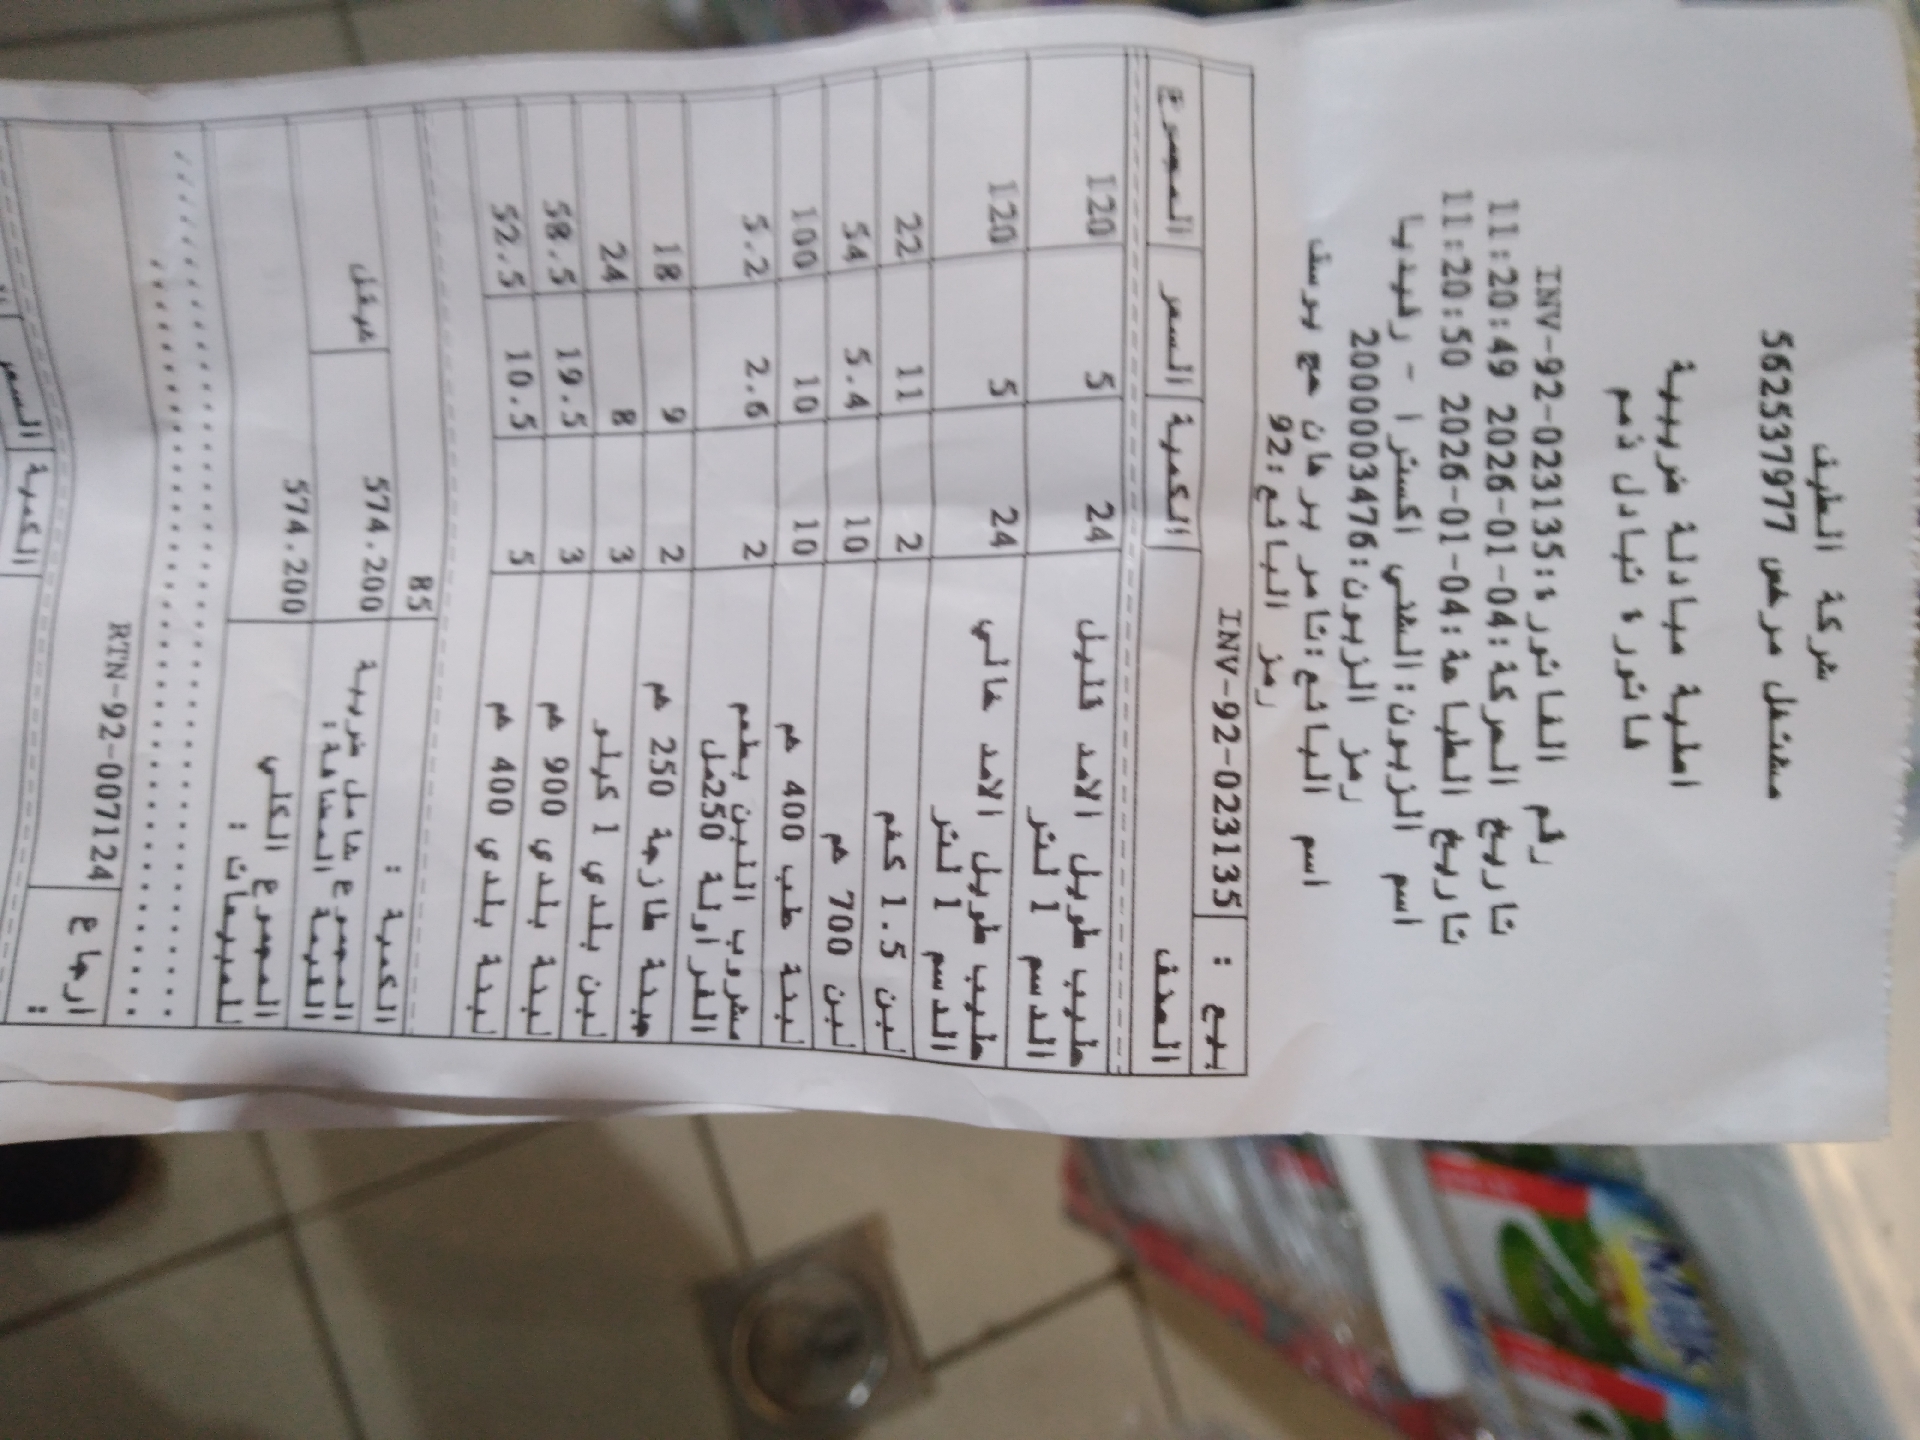 شركة الطيف
مشتغل مرخص 562537977
اصلية مبادلة ضريبية
فاتورة تبادل ذمم
رقم الفاتورة: INV-92-023135
تاريخ الحركة: 2026-01-04 11:20:49
تاريخ الطباعة: 2026-01-04 11:20:50
اسم الزبون: الشني اكسترا - رفيديا
رمز الزبون: 2000003476
اسم البائع: تامر برهان حج يوسف
رمز البائع: 92
بيع : INV-92-023135
الصنف الكمية السعر المجموع
حليب طويل الامد قليل 24 5 120
الدسم 1 لتر
حليب طويل الامد خالي 24 5 120
الدسم 1 لتر
لبن 1.5 كغم 2 11 22
لبن 700 غم 10 5.4 54
لبنة طب 400 غم 10 10 100
مشروب اللبن بطعم 2 2.6 5.2
الفراولة 250مل
جبنة طازجة 250 غم 2 9 18
لبن بلدي 1 كيلو 3 8 24
لبنة بلدي 900 غم 3 19.5 58.5
لبنة بلدي 400 غم 5 10.5 52.5
الكمية : 85
المجموع شامل ضريبة 574.200 شيقل
القيمة المضافة:
المجموع الكلي 574.200
للمبيعات :
ارجاع RTN-92-007124
:
الكمية السعر